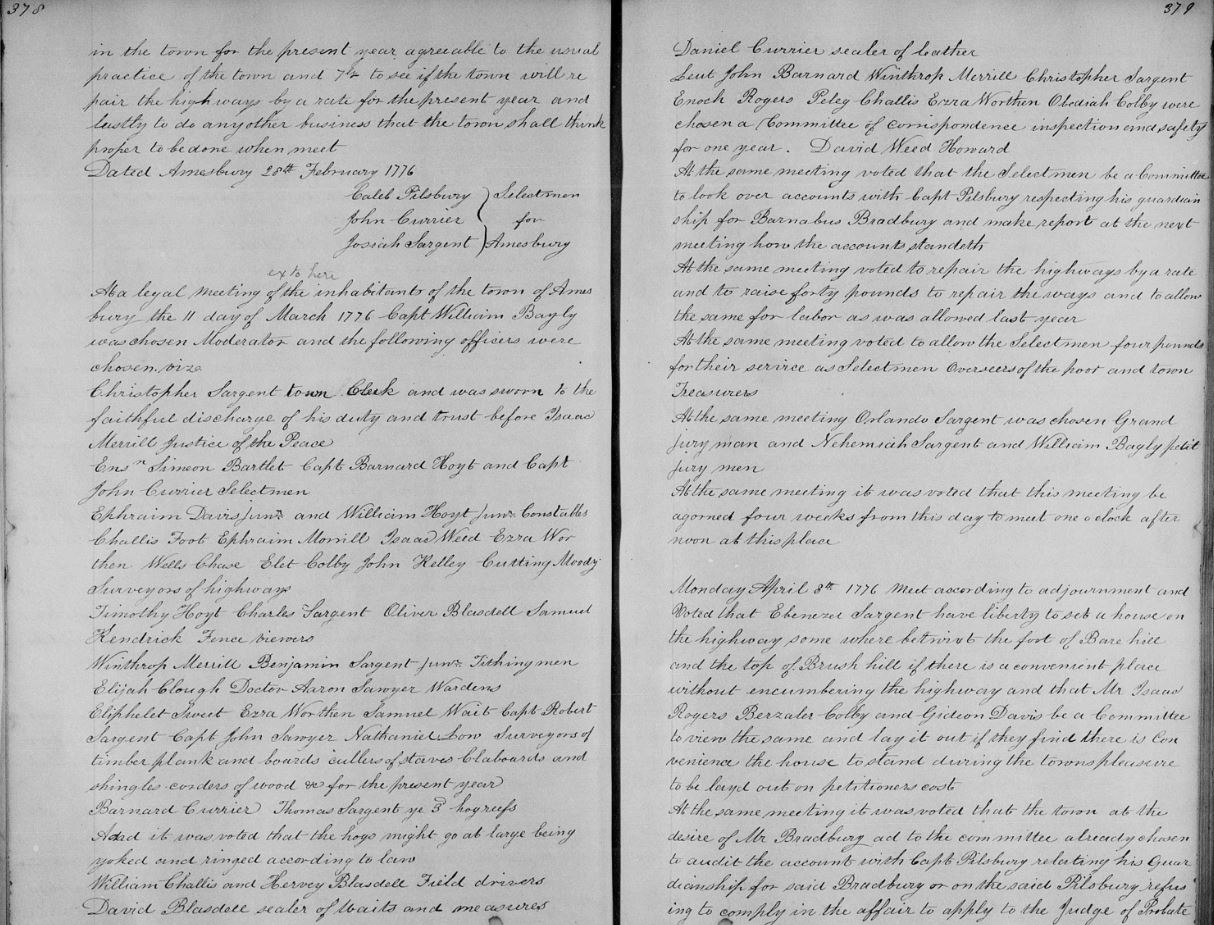 378
in the town for the present year agreeable to the usual
practice of the town and 7ly to see if the town will re
pair the highways by a rate for the present year and
lastly to do any other business that the town shall think
proper to be done when meet
Dated Amesbury 28th February 1776
Caleb Pilsbury } Selectmen
John Currier } for
Josiah Sargent } Amesbury
ex to here
At a legal meeting of the inhabitants of the town of Ames
bury the 11 day of March 1776 Capt William Bagly
was chosen Moderator and the following officers were
chosen viz
Christopher Sargent town Clerk and was sworn to the
faithful discharge of his duty and trust before Isaac
Merrill Justice of the Peace
Ensn Simeon Bartlet Capt Barnard Hoyt and Capt
John Currier Selectmen
Ephraim Davis Junr and William Hoyt Junr Constables
Challis Foot Ephraim Morrill Isaac Weed Ezra Wor
then Wells Chase Elet Colby John Kelley Cutting Moody
Surveyors of highways
Timothy Hoyt Charles Sargent Oliver Blasdell Samuel
Kendrick Fence viewers
Winthrop Merrill Benjamin Sargent Junr Tithingmen
Elijah Clough Doctor Aaron Sawyer Wardens
Eliphelet Swett Ezra Worthen Samuel Wait Capt Robert
Sargent Capt John Sawyer Nathaniel Dow Surveyors of
timber plank and boards cullers of staves Claboards and
shingles corders of wood &c for the present year
Barnard Currier Thomas Sargent ye 3d hogreefs
And it was voted that the hogs might go at large being
yoked and ringed according to law
William Challis and Hervey Blasdell Field drivers
David Blasdell sealer of Waits and measures
379
Daniel Currier sealer of leather
Leut John Barnard Winthrop Merrill Christopher Sargent
Enoch Rogers Peleg Challis Ezra Worthen Obadiah Colby were
chosen a Committee of corrispondence inspection and safety
for one year. David Weed Howard
At the same meeting voted that the Selectmen be a Committee
to look over accounts with Capt Pilsbury respecting his guardian
ship for Barnabus Bradbury and make report at the next
meeting how the accounts standeth
At the same meeting voted to repair the highways by a rate
and to raise forty pounds to repair the ways and to allow
the same for labor as was allowed last year
At the same meeting voted to allow the Selectmen four pounds
for their service as Selectmen Overseers of the poor and town
Treasurers
At the same meeting Orlando Sargent was chosen Grand
Jury man and Nehemiah Sargent and William Bagly petit
Jury men
At the same meeting it was voted that this meeting be
agorned four weeks from this day to meet one o clock after
noon at this place
Monday April 8th 1776 Meet according to adjournment and
Voted that Ebenezer Sargent have liberty to set a house on
the highway some where betwixt the foot of Bare hill
and the top of Brush hill if there is a convenient place
without encumbering the highway and that Mr Isaac
Rogers Berzaler Colby and Gideon Davis be a Committee
to view the same and lay it out if they find there is Con
venience the house to stand during the towns pleasure
to be layd out on petitioners cost
At the same meeting it was voted that the town at the
desire of Mr Bradbury ad to the committee already chosen
to audit the account with Capt Pilsbury relesting his Guar
dianship for said Bradbury or on the said Pilsbury refus
ing to comply in the affair to apply to the Judge of Probate